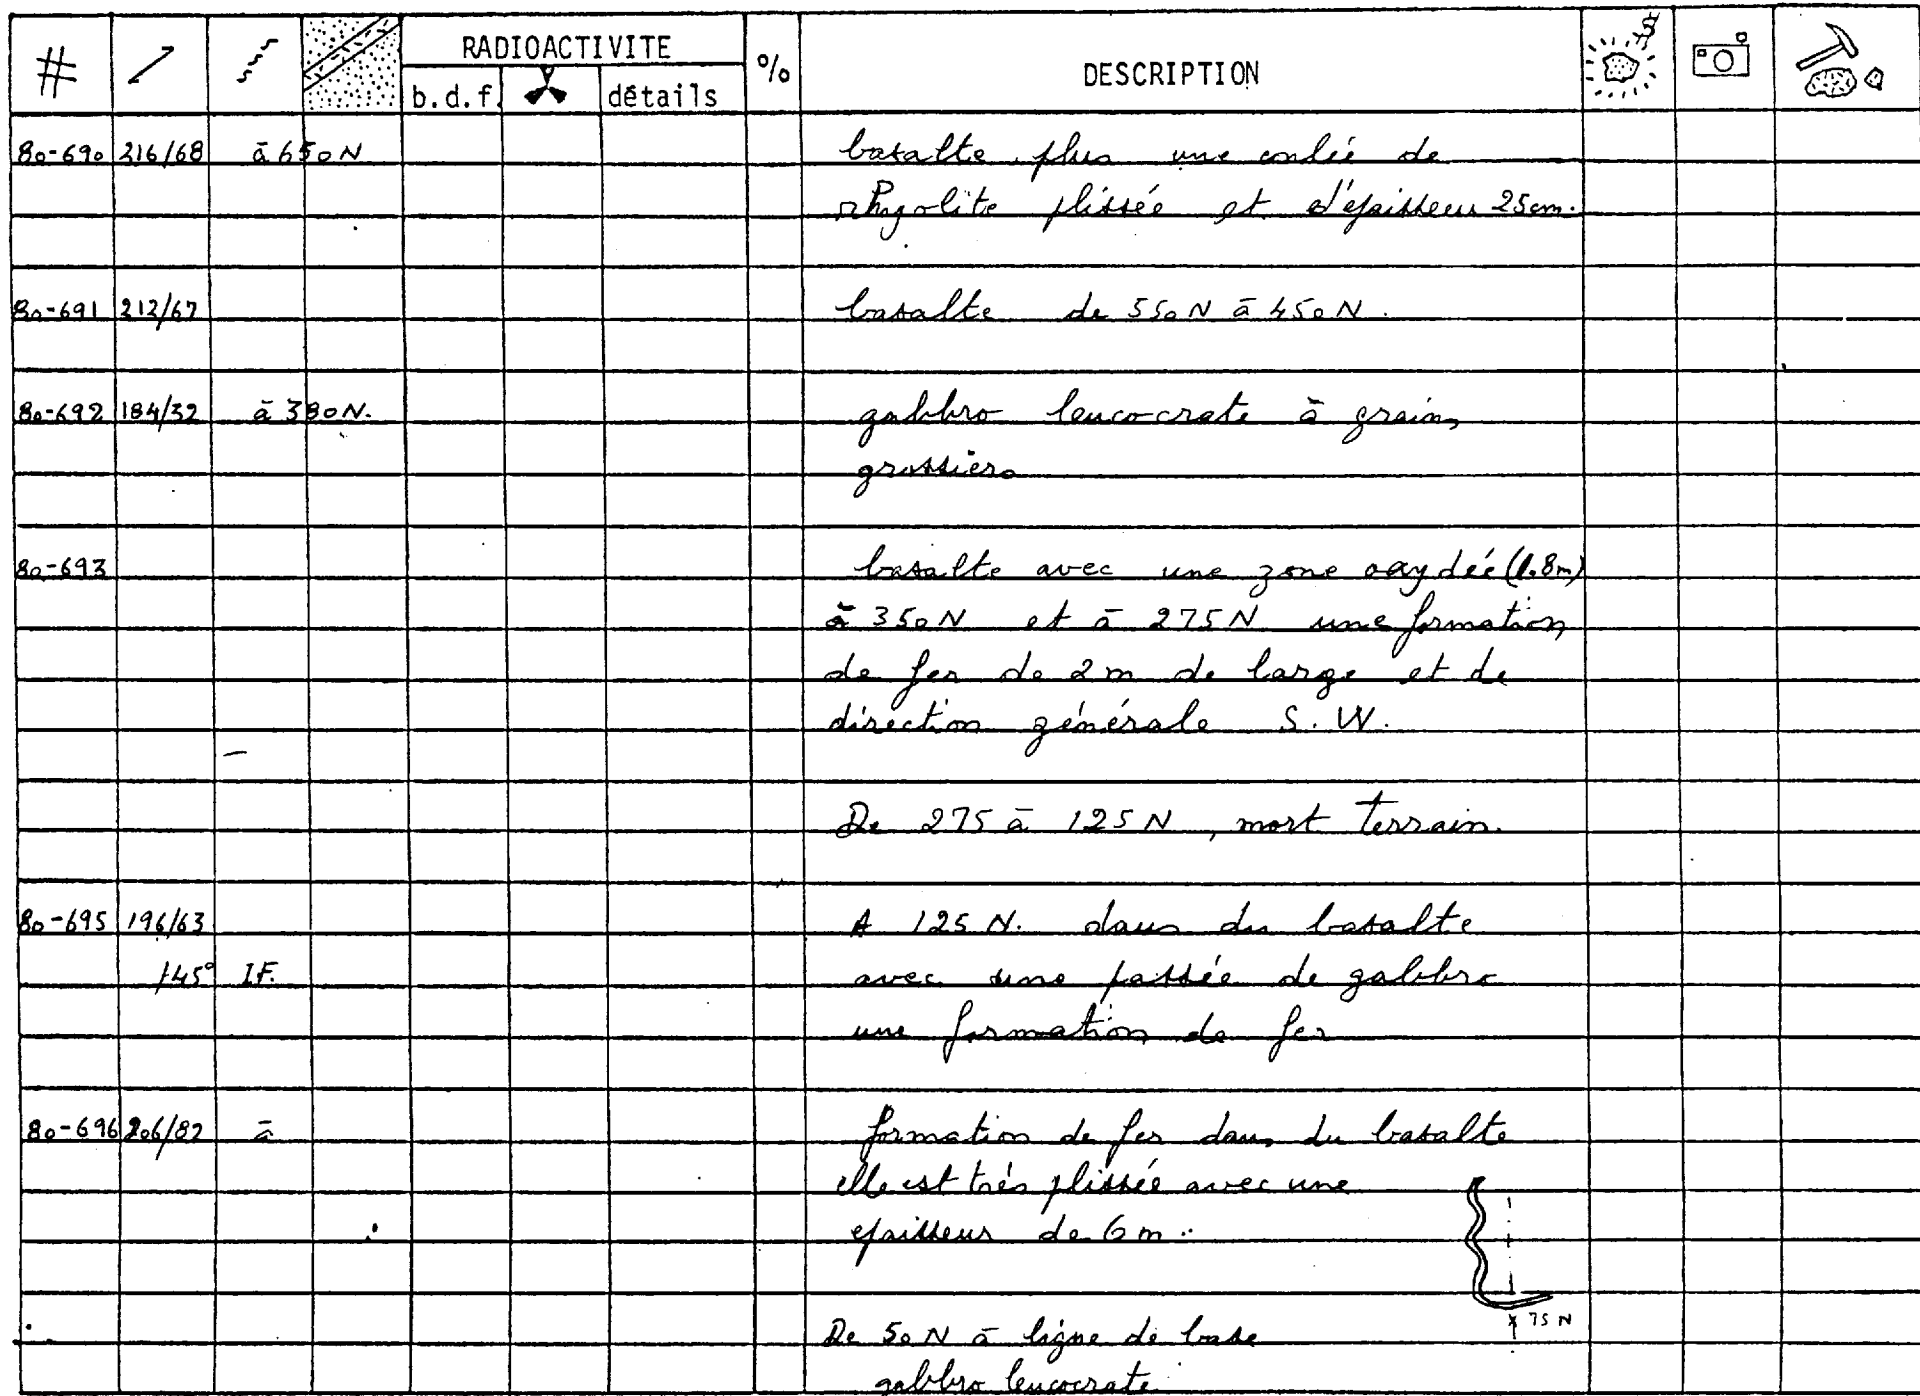 # RADIOACTIVITE % DESCRIPTION
b.d.f. détails
80-690 216/68 à 650N basalte plus une coulée de
rhyolite plissée et d'épaisseur 25cm.
80-691 212/67 basalte de 550N à 450N.
80-692 184/32 à 380N. gabbro leucocrate à grains
grossiers
80-693 basalte avec une zone oxydée (1.8m)
à 350N et à 275N une formation
de fer de 2m de large et de
direction générale S.W.
De 275 à 125N, mort terrain.
80-695 196/63 A 125N. dans du basalte
/45° IF. avec une passée de gabbro
une formation de fer
80-696 206/82 à formation de fer dans du basalte
elle est très plissée avec une
epaisseur de 6m.
75 N
De 50N à ligne de base
gabbro leucocrate